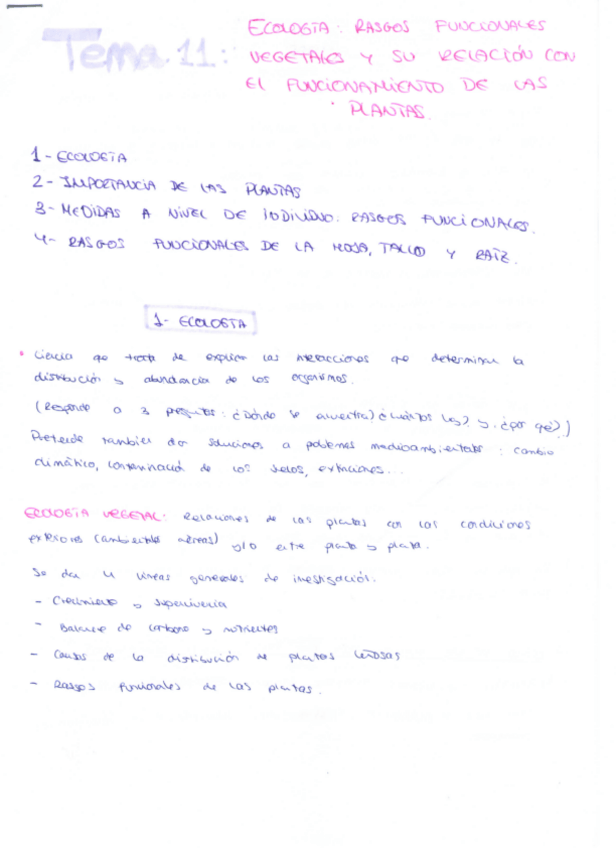 Tema 11: ECOLOGÍA: RASGOS FUNCIONALES
VEGETALES Y SU RELACIÓN CON
EL FUNCIONAMIENTO DE LAS
PLANTAS.
1- ECOLOGÍA
2- IMPORTANCIA DE LAS PLANTAS
3- MEDIDAS A NIVEL DE INDIVIDUO. RASGOS FUNCIONALES.
4- RASGOS FUNCIONALES DE LA HOJA, TALLO Y RAÍZ.
1- ECOLOGÍA
• Ciencia que trata de explicar las interacciones que determinan la
distribución y abundancia de los organismos.
(Responde a 3 preguntas: ¿Dónde se encuentra? ¿cuántos hay? y ¿por qué?)
Pretende también dar soluciones a problemas medioambientales: cambio
climático, contaminación de los suelos, extinciones...
ECOLOGÍA VEGETAL: Relaciones de las plantas con las condiciones
exteriores (ambientales aéreas) y/o entre planta y planta.
Se dan 4 líneas generales de investigación:
- Crecimiento y supervivencia
- Balance de carbono y nutrientes
- Causas de la distribución de plantas leñosas
- Rasgos funcionales de las plantas.